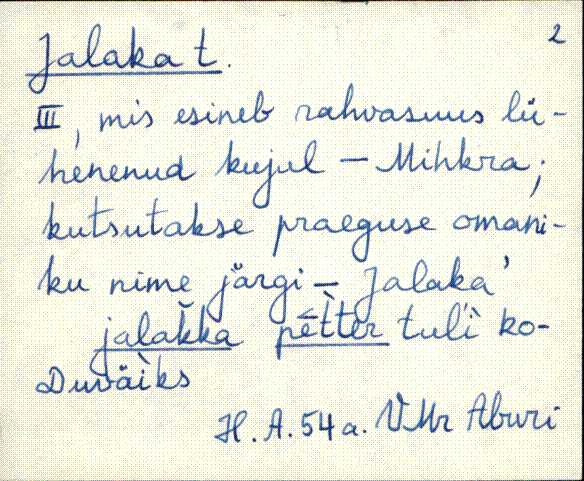 2
Jalaka t.
III, mis esineb rahvasuus lü-
henenud kujul – Mihkra;
kutsutakse praeguse omani-
ku nime järgi – Jalaka'
jalak̆ka pét̀ter tuĺì ko-
Duväìks
H. A. 54 a. VMr Aburi